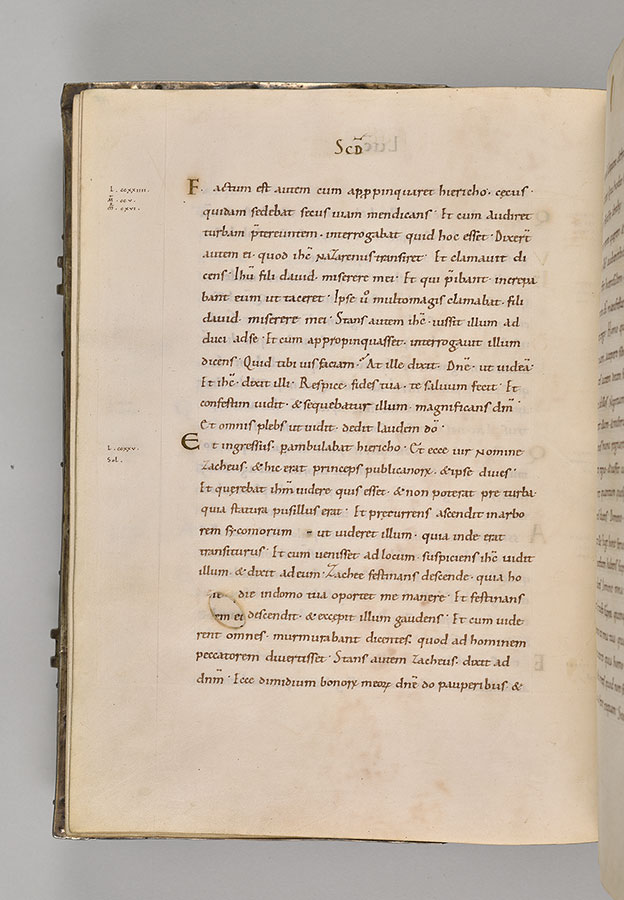 Scd̄
L. ccxxiiii.
m̄. ccv.
m̄. cxvi.
F. actum est autem cum appropinquaret hiericho. cęcus.
quidam sedebat secus uiam mendicans. Et cum audiret
turbam p̄tereuntem. interrogabat quid hoc esset. Dixer̄t
autem ei. quod ihc̄ nazarenus transiret. Et clamauit di
cens. Ihū fili dauid. miserere mei. Et qui p̄ibant increpa
bant eum ut taceret. Ipse ū multomagis clamabat. fili
dauid. miserere mei. Stans autem ihc̄. iussit illum ad
duci adse. Et cum appropinquasset. interrogauit illum
dicens. Quid tibi uis faciam. At ille dixit. Dnē. ut uideā
Et ihc̄. dixit illi. Respice. fides tua. te saluum fecit. Et
confestim uidit. & sequebatur illum. magnificans dm̄.
Et omnis plebs ut uidit. dedit laudem dō.
L. ccxxv.
Sol.
Et ingressus. pambulabat hiericho. Et ecce uir nomine
zacheus. & hic erat princeps publicanorꝝ. & ipse diues.
Et querebat ihm̄ uidere quis esset. & non poterat pre turba.
quia statura pusillus erat. Et precurrens ascendit inarbo
rem sycomorum ut uideret illum. quia inde erat
transiturus. Et cum uenisset adlocum. suspiciens ihc̄ uidit
illum. & dixit adeum. Zachee festinans descende. quia ho
die indomo tua oportet me manere. Et festinans
descendit. & excepit illum gaudens. Et cum uide
rent omnes. murmurabant dicentes. quod ad hominem
peccatorem diuertisset. Stans autem zacheus. dixit ad
dnm̄. Ecce dimidium bonorꝝ meorꝝ dnē do pauperibus. &